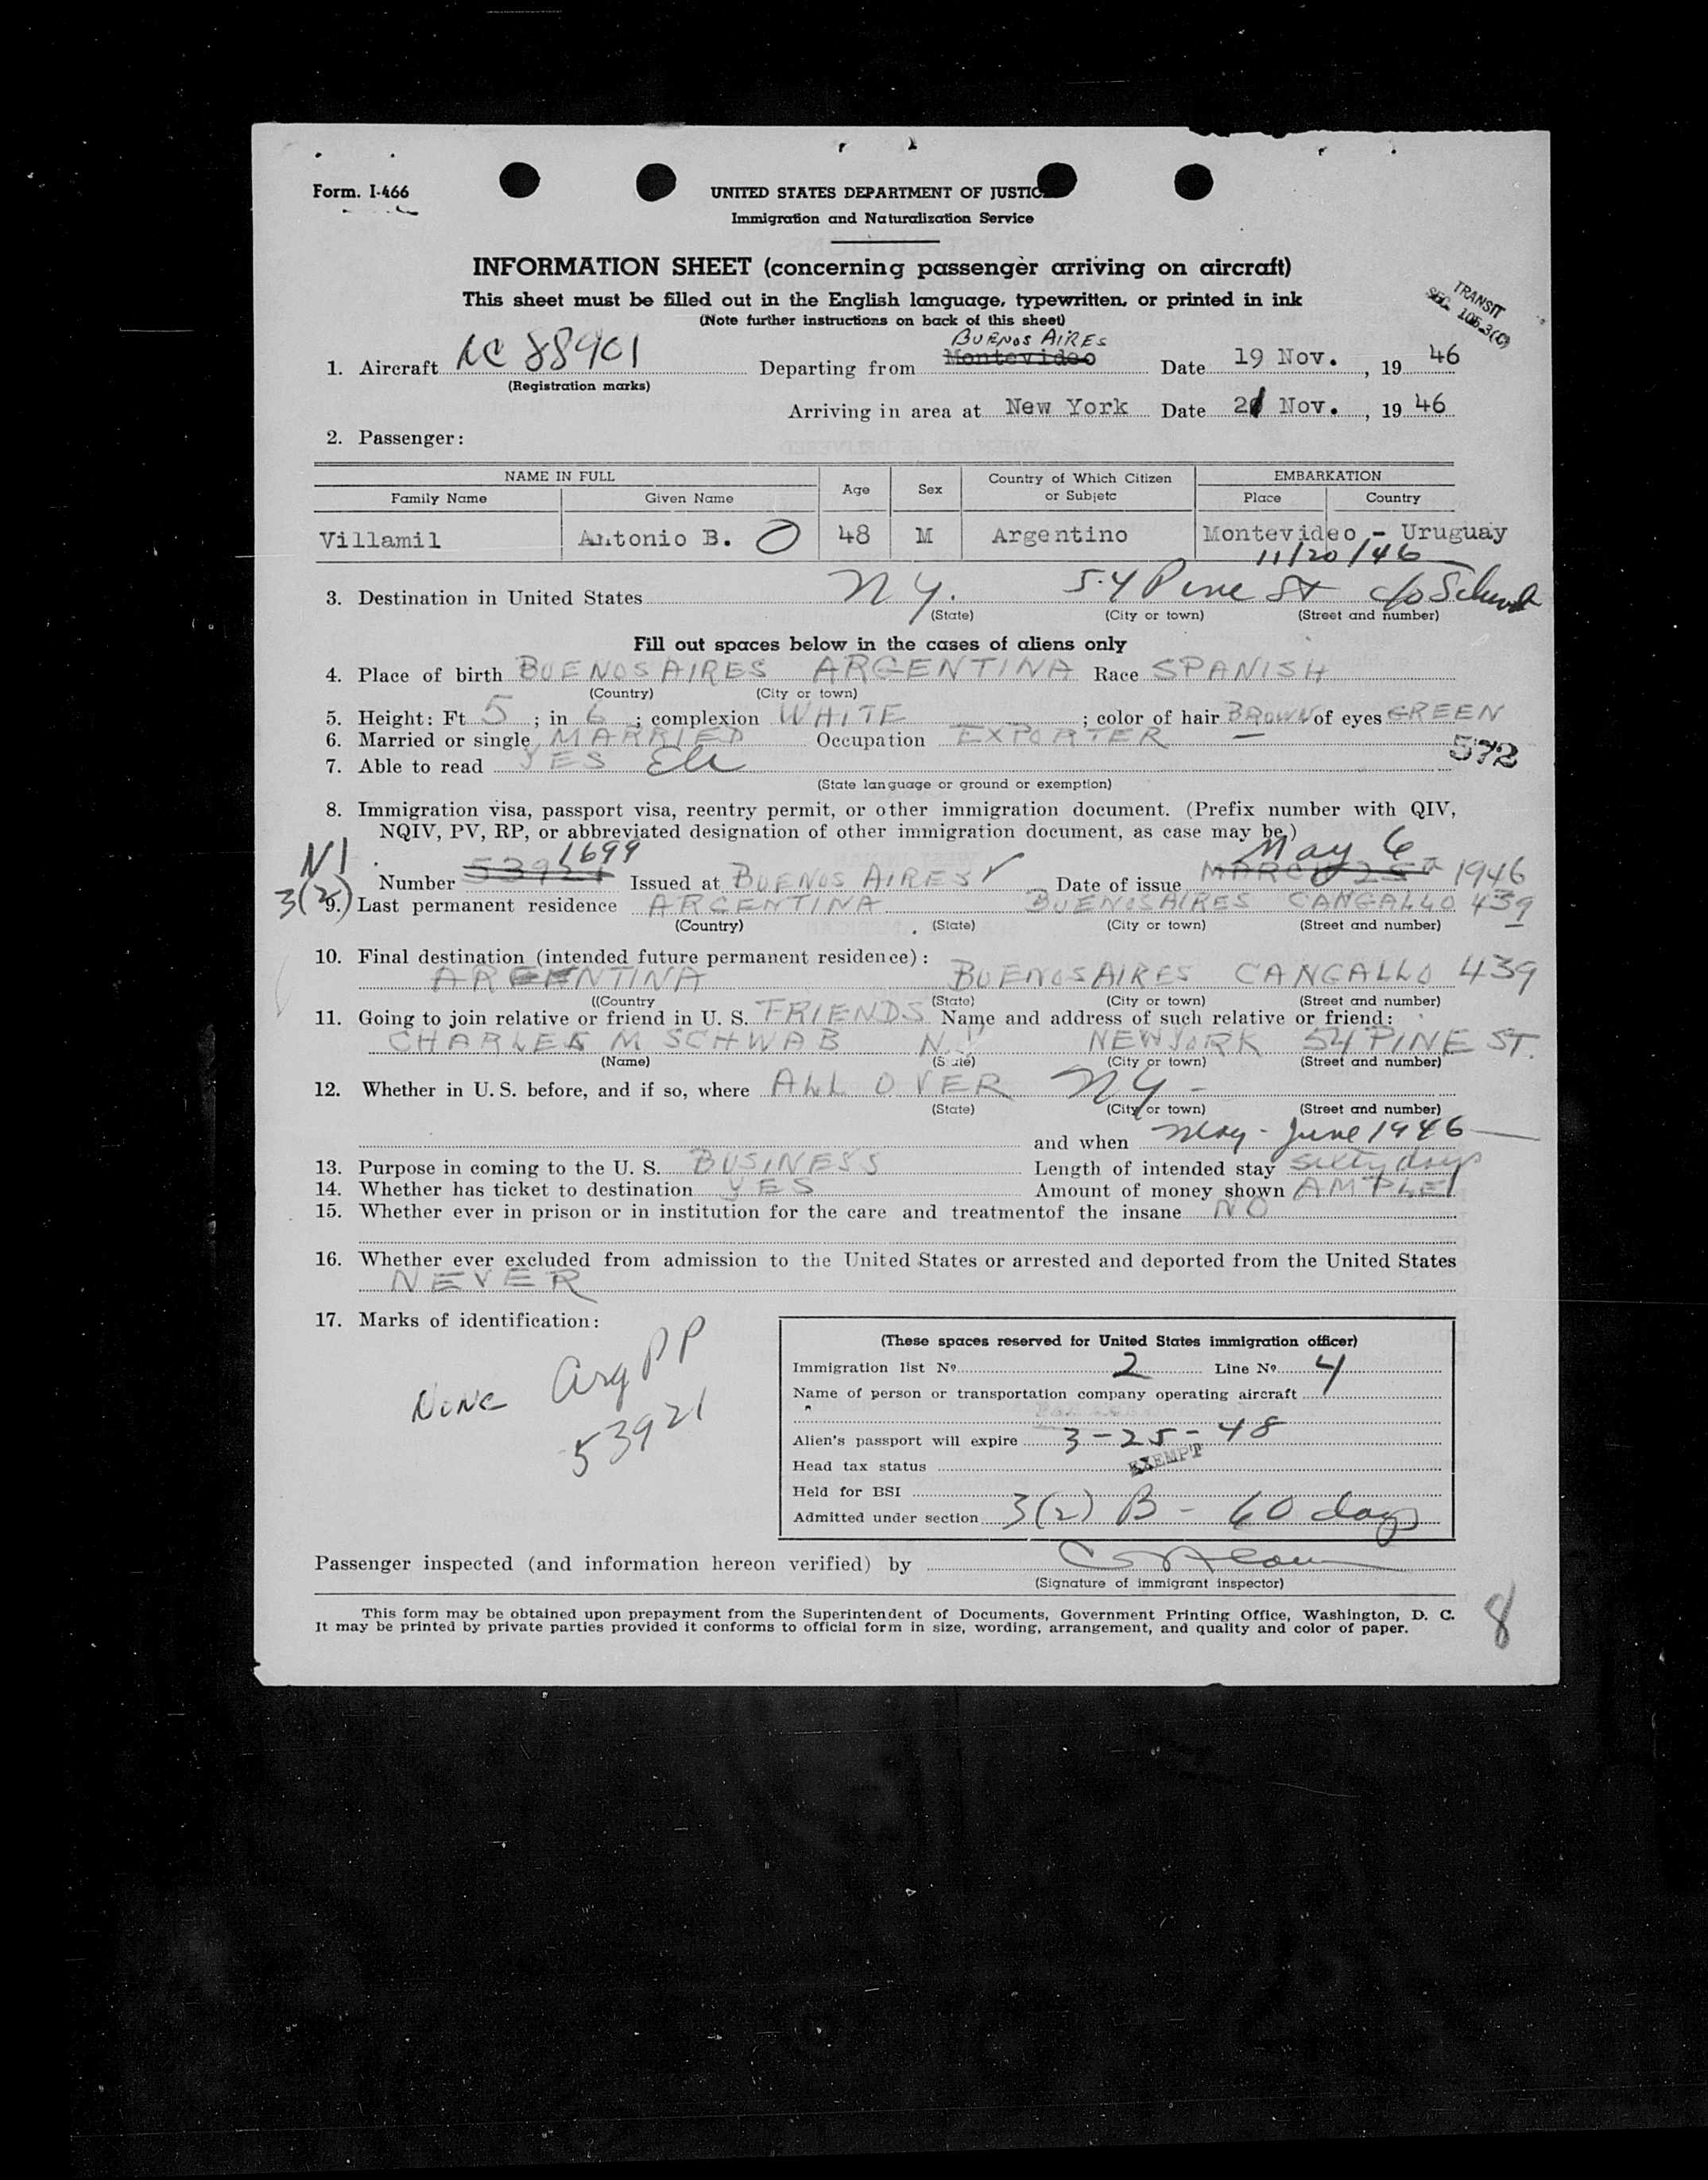 Form. I-466
UNITED STATES DEPARTMENT OF JUSTIC
Immigration and Naturalization Service
INFORMATION SHEET (concerning passenger arriving on aircraft)
This sheet must be filled out in the English language, typewritten, or printed in ink
(Note further instructions on back of this sheet)
TRANSIT
SEC. 105.3(C)
BUENOS AIRES
1. Aircraft NC 88901 Departing from Montevideo Date 19 Nov., 19 46
(Registration marks)
Arriving in area at New York Date 21 Nov., 19 46
2. Passenger:
NAME IN FULL Age Sex Country of Which Citizen or Subjetc EMBARKATION
Family Name Given Name Place Country
Villamil Antonio B. O 48 M Argentino Montevideo - Uruguay
11/20/46
3. Destination in United States N Y. 54 Pine St c/o
(State) (City or town) (Street and number)
Fill out spaces below in the cases of aliens only
4. Place of birth BUENOS AIRES ARGENTINA Race SPANISH
(Country) (City or town)
5. Height: Ft 5 ; in 6 ; complexion WHITE ; color of hair BROWN of eyes GREEN
6. Married or single MARRIED Occupation EXPORTER
572
7. Able to read YES
(State language or ground or exemption)
8. Immigration visa, passport visa, reentry permit, or other immigration document. (Prefix number with QIV,
NQIV, PV, RP, or abbreviated designation of other immigration document, as case may be.)
1699 May 6
Number 53921 Issued at BUENOS AIRES Date of issue MARCH 25 1946
3(2)
9. Last permanent residence ARGENTINA BUENOS AIRES CANGALLO 439
(Country) (State) (City or town) (Street and number)
10. Final destination (intended future permanent residence):
ARGENTINA BUENOS AIRES CANGALLO 439
((Country (State) (City or town) (Street and number)
11. Going to join relative or friend in U. S. FRIENDS Name and address of such relative or friend:
CHARLES M SCHWAB N.Y. NEW YORK 54 PINE ST.
(Name) (State) (City or town) (Street and number)
12. Whether in U. S. before, and if so, where ALL OVER N Y -
(State) (City or town) (Street and number)
and when May - June 1946
13. Purpose in coming to the U. S. BUSINESS Length of intended stay sixty days
14. Whether has ticket to destination YES Amount of money shown AMPLE
15. Whether ever in prison or in institution for the care and treatmentof the insane NO
16. Whether ever excluded from admission to the United States or arrested and deported from the United States
NEVER
17. Marks of identification:
NONE Arg PP
53921
(These spaces reserved for United States immigration officer)
Immigration list Nº 2 Line Nº 4
Name of person or transportation company operating aircraft
Alien's passport will expire 3-25-48
Head tax status EXEMPT
Held for BSI
Admitted under section 3(2) B - 60 days
Passenger inspected (and information hereon verified) by
(Signature of immigrant inspector)
This form may be obtained upon prepayment from the Superintendent of Documents, Government Printing Office, Washington, D. C.
It may be printed by private parties provided it conforms to official form in size, wording, arrangement, and quality and color of paper.
8